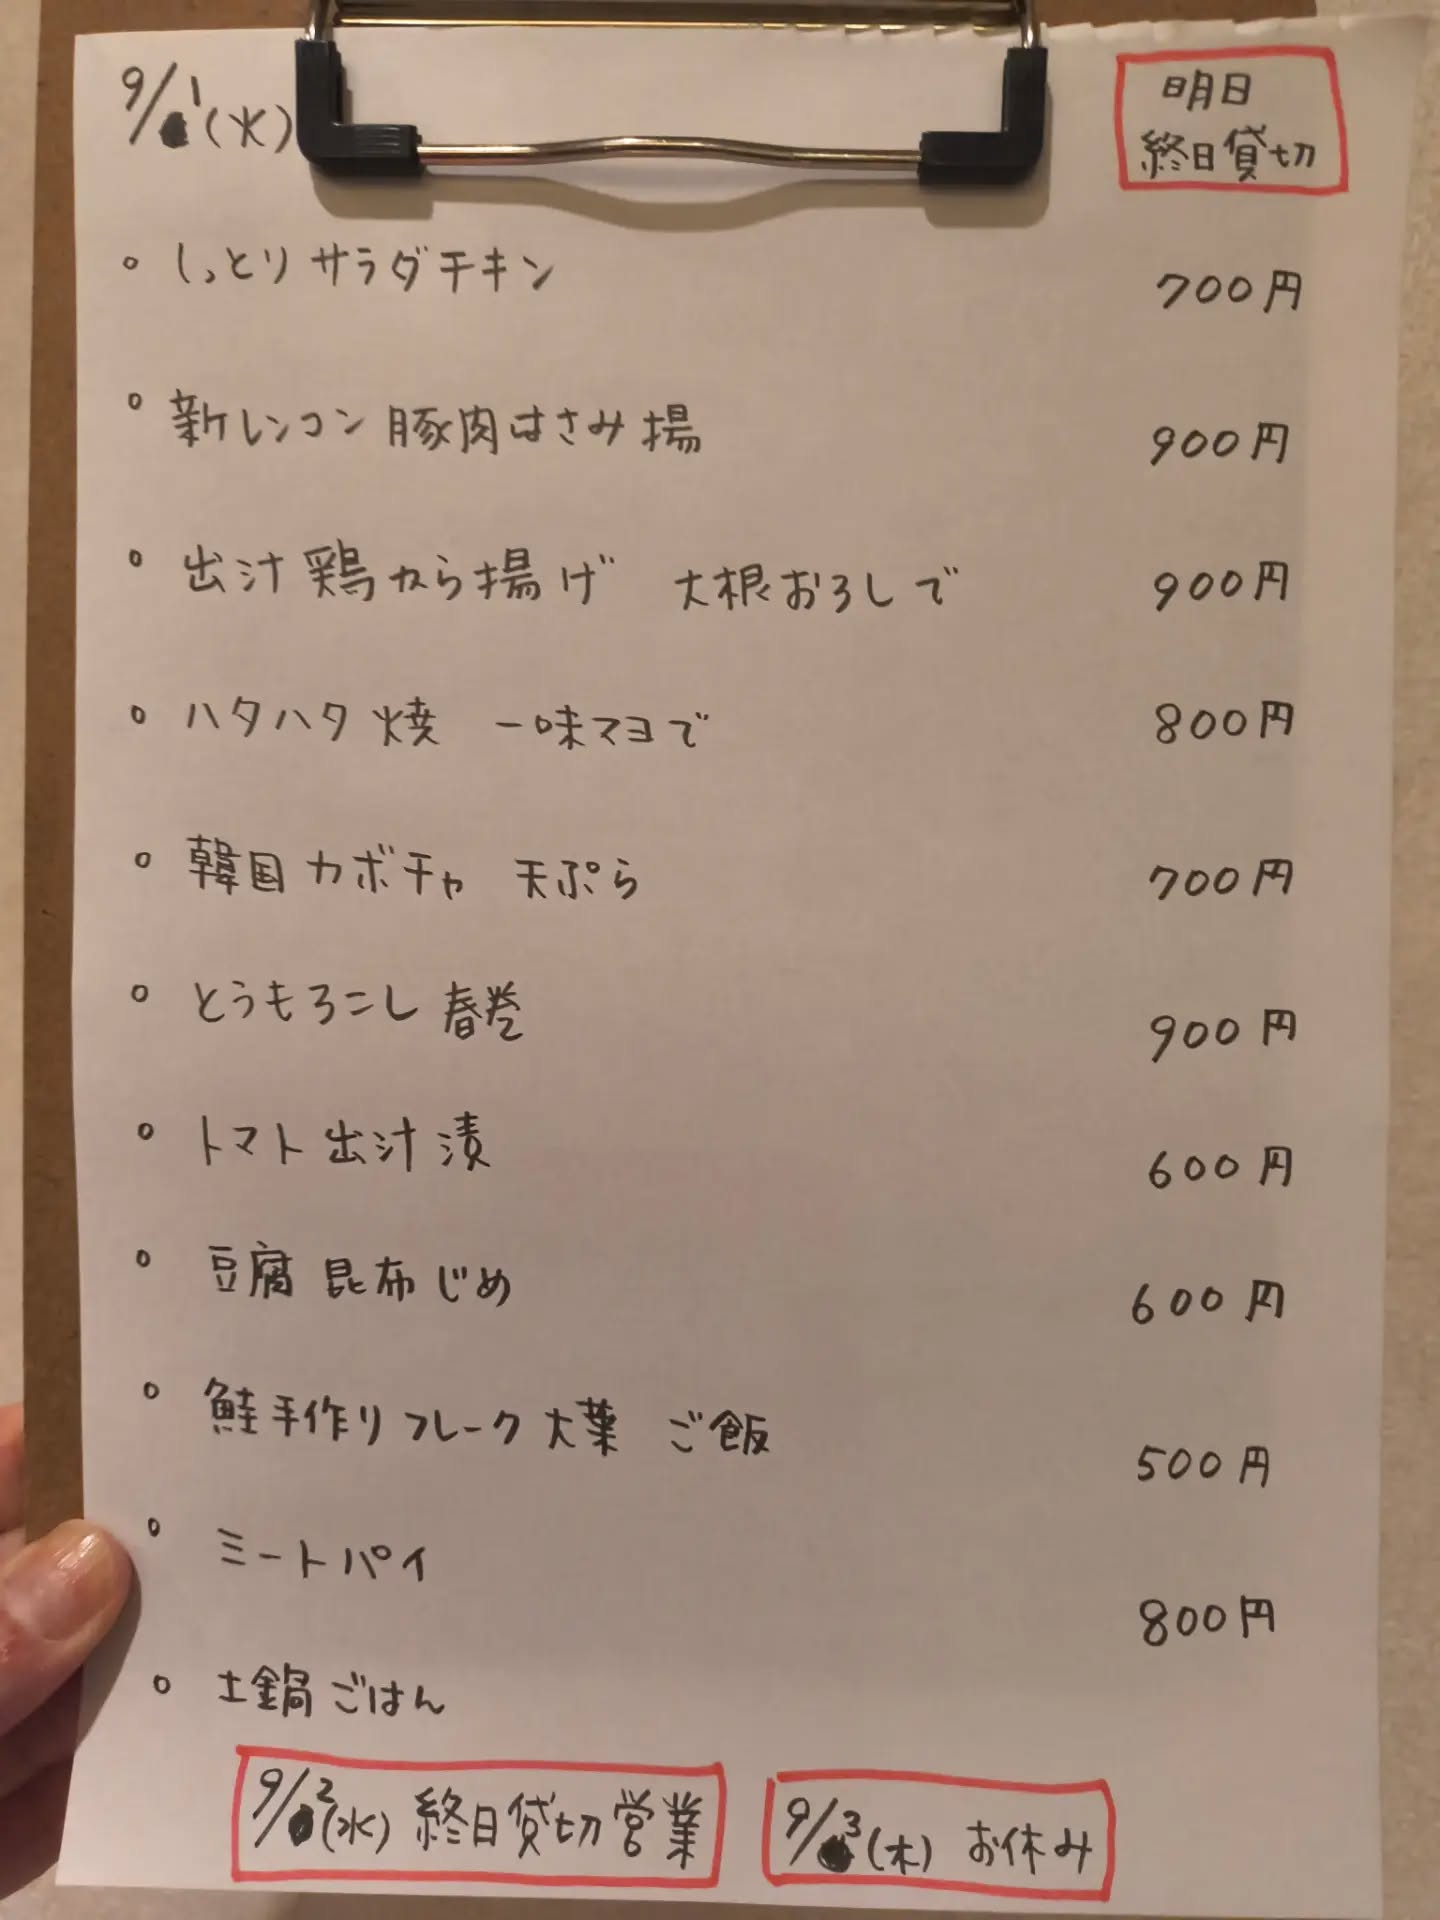 9/1(火)
明日
終日貸切
○ しっとりサラダチキン 700円
○ 新レンコン 豚肉はさみ揚 900円
○ 出汁鶏から揚げ 大根おろしで 900円
○ ハタハタ焼 一味マヨで 800円
○ 韓国カボチャ 天ぷら 700円
○ とうもろこし春巻 900円
○ トマト出汁漬 600円
○ 豆腐昆布じめ 600円
○ 鮭手作りフレーク大葉 ご飯 500円
○ ミートパイ 800円
○ 土鍋ごはん
9/2(水) 終日貸切営業
9/3(木) お休み